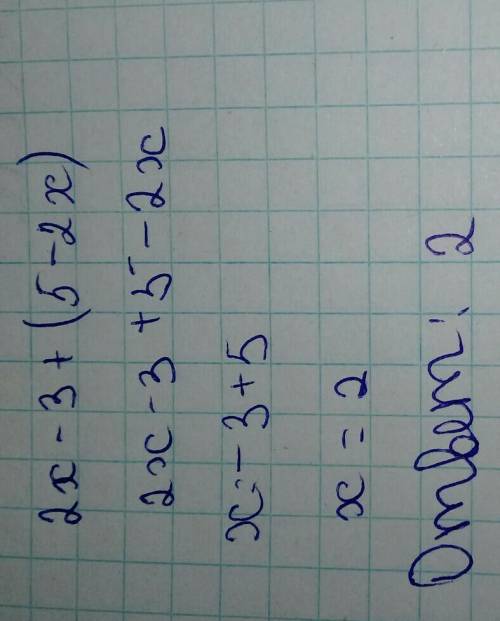 2x - 3 + (5 - 2x)
2x - 3 + 5 - 2x
x = -3 + 5
x = 2
Ответ: 2